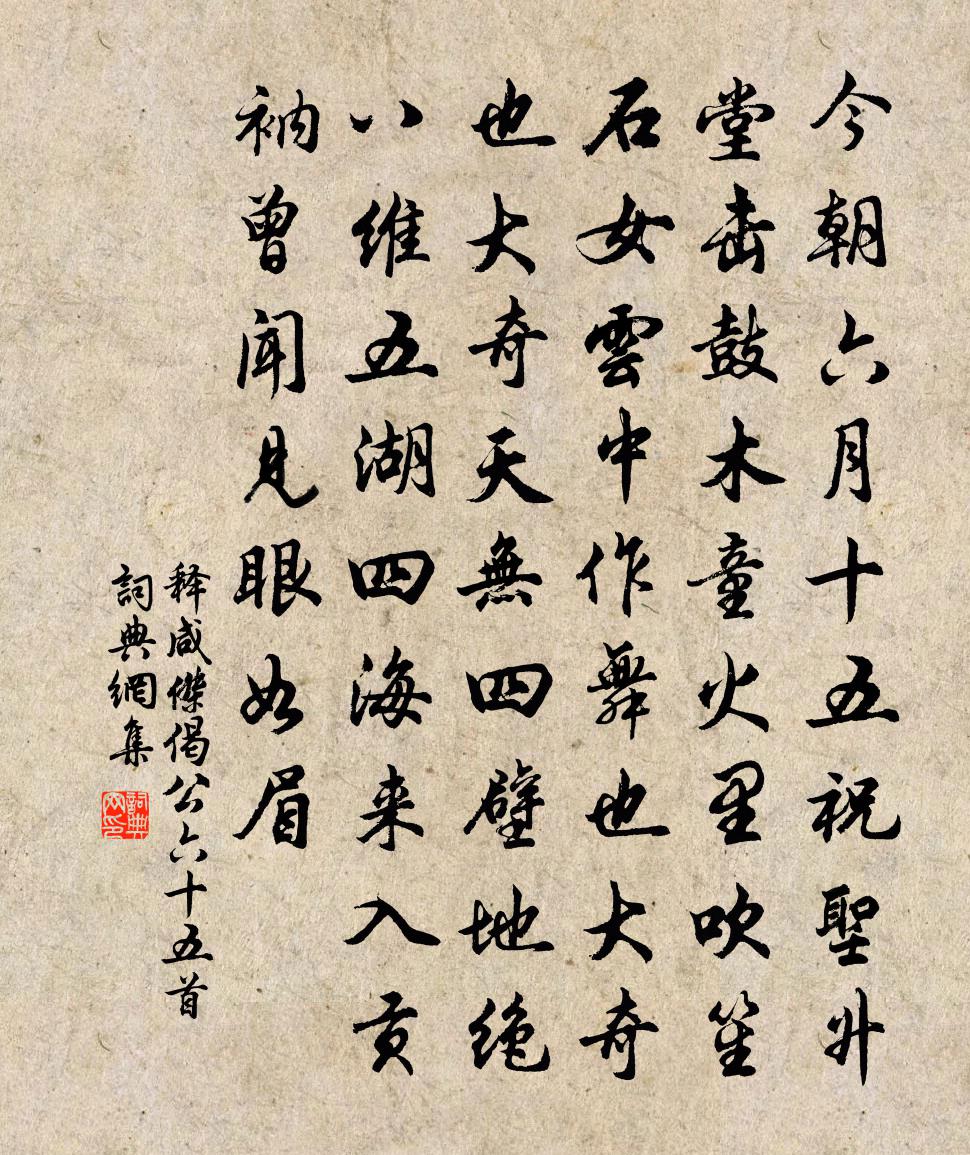 今朝六月十五祝聖升
堂击鼓木童火里吹笙
石女雲中作舞也大奇
也大奇天無四壁地绝
八維五湖四海来入贡
衲曾闻見眼如眉
释咸傑偈公六十五首
詞典網集
詞典网印